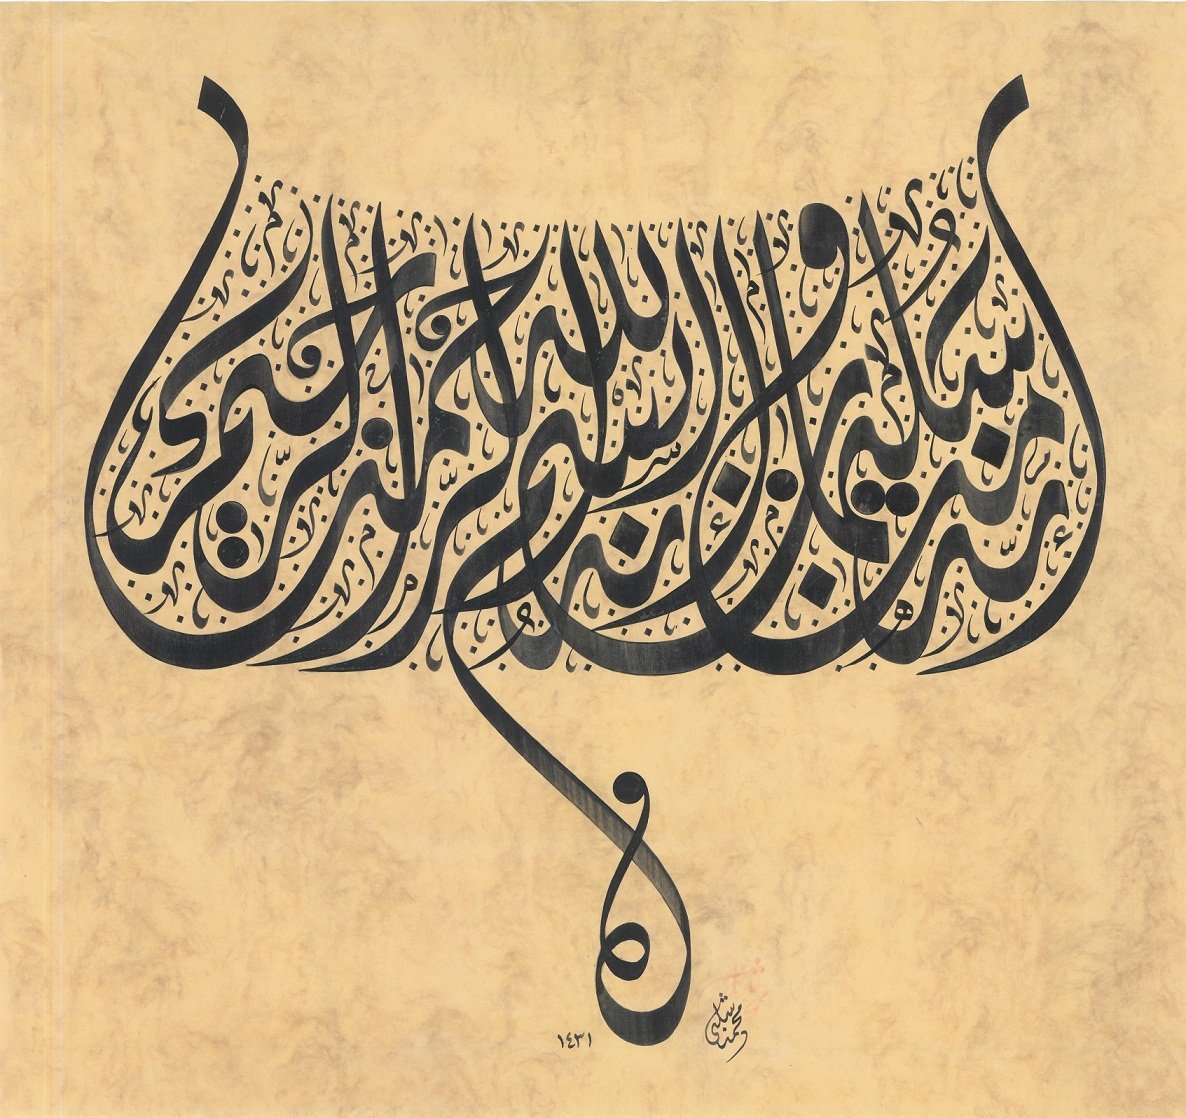 إنه من سليمان وإنه بسم الله الرحمن الرحيم
١٤٣١
محمد شلبي